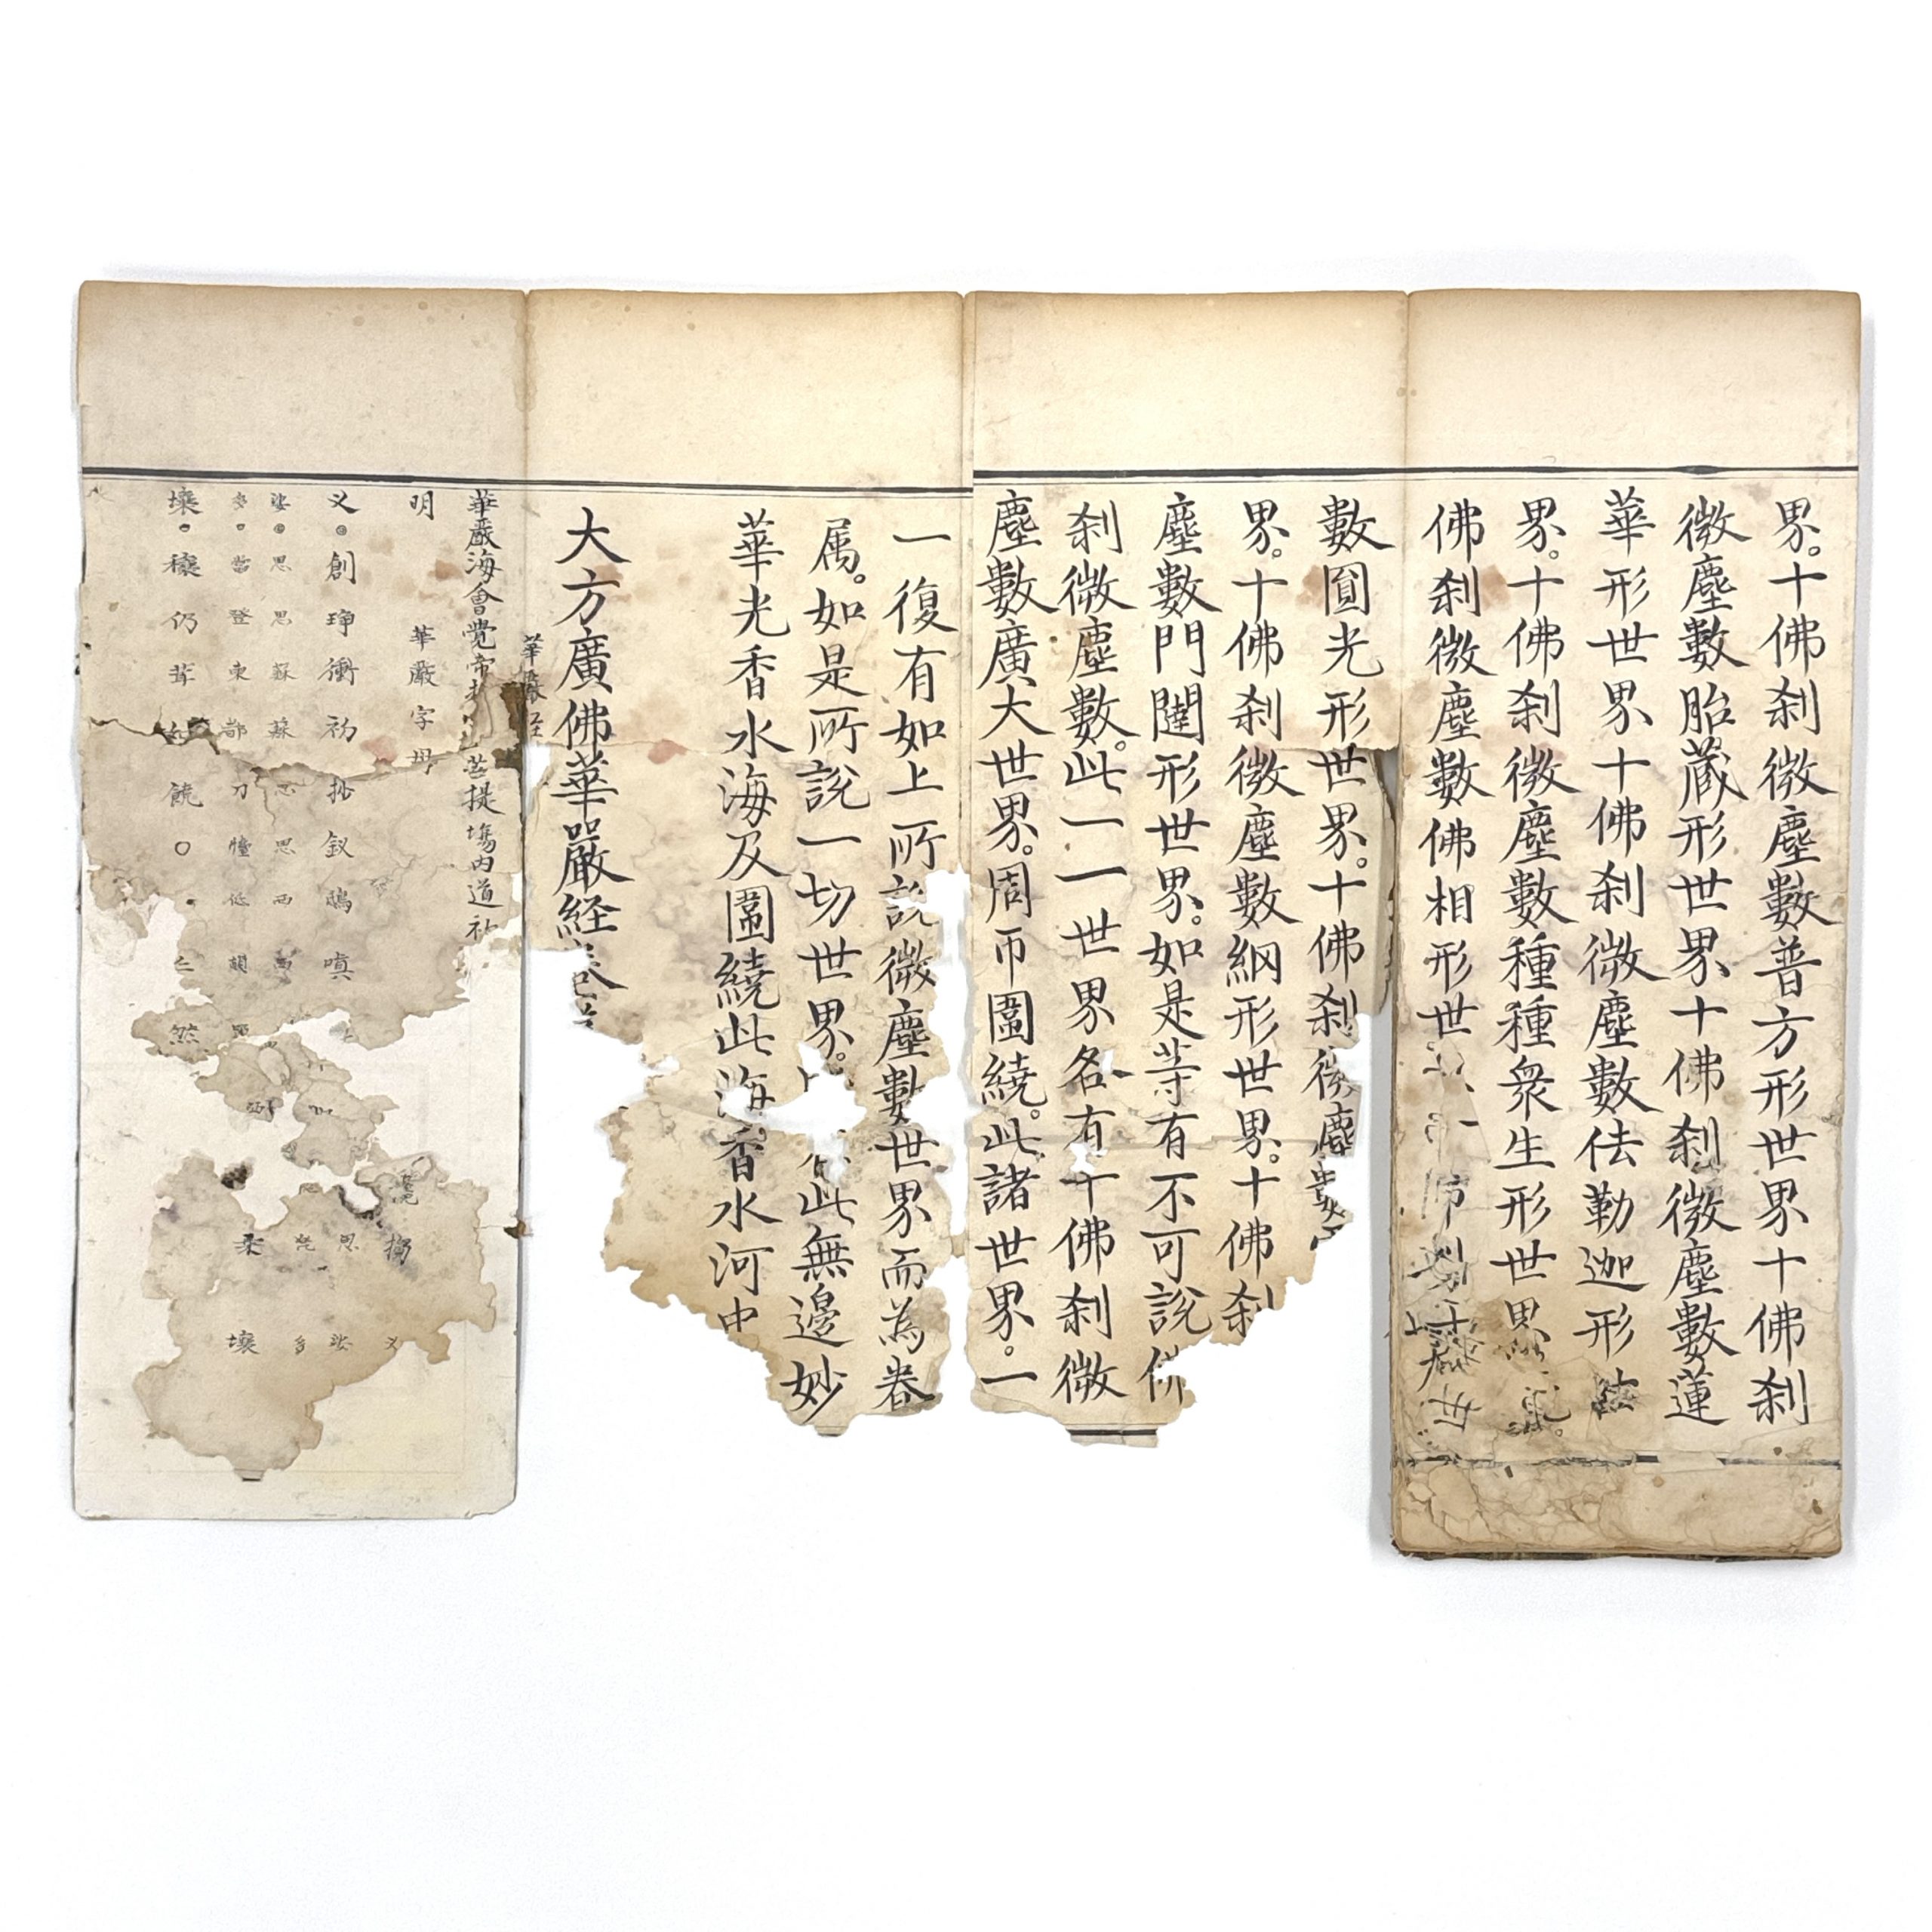 界。十佛刹微塵數普方形世界十佛刹
微塵數胎藏形世界十佛刹微塵數蓮
華形世界十佛刹微塵數佉勒迦形
界。十佛刹微塵數種種衆生形世界
佛刹微塵數佛相形世
數圓光形世界。十佛刹微塵數
界。十佛刹微塵數網形世界。十佛刹
塵數門闥形世界。如是等有不可說佛
刹微塵數。此一一世界名有十佛刹微
塵數廣大世界。周帀圍繞。此諸世界。一
一復有如上所說微塵數世界而為眷
属。如是所說一切世界。此無邊妙
華光香水海及圍繞此海。香水河中
大方廣佛華嚴経卷
華嚴経
華嚴海會覺帝菩提塲內道
明 華嚴字母
义。創琤衝初釵鴟嗔 搊 义
娑。思思蘇蘇思西 思 娑
多。當登東都刀低顛 多
壤。穰仍茸饒○ 然 柔 壤